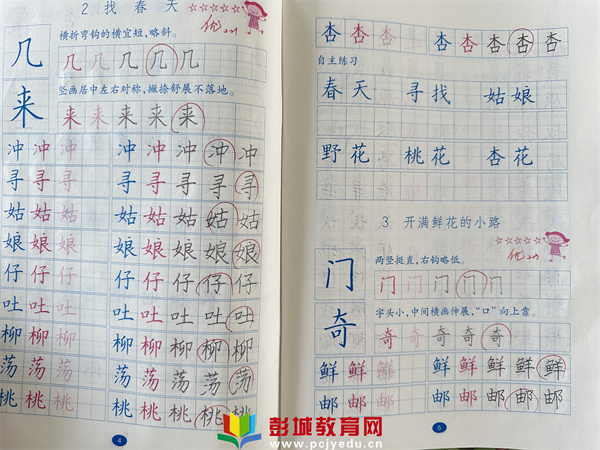 2 找 春 天
优
横折弯钩的横宜短，略斜。
几 几 几 几 几 几
竖画居中左右对称，撇捺舒展不落地。
来 来 来 来 来 来
冲 冲 冲 冲 冲 冲 冲 冲
寻 寻 寻 寻 寻 寻 寻 寻
姑 姑 姑 姑 姑 姑 姑 姑
娘 娘 娘 娘 娘 娘 娘 娘
仔 仔 仔 仔 仔 仔 仔 仔
吐 吐 吐 吐 吐 吐 吐 吐
柳 柳 柳 柳 柳 柳 柳 柳
荡 荡 荡 荡 荡 荡 荡 荡
桃 桃 桃 桃 桃 桃 桃 桃
4
杏 杏 杏 杏 杏 杏 杏 杏
自主练习
春 天 寻 找 姑 娘
野 花 桃 花 杏 花
3 开满鲜花的小路
优
两竖挺直，右钩略低。
门 门 门 门 门 门
字头小，中间横画伸展，“口”向上靠。
奇 奇 奇 奇 奇 奇
鲜 鲜 鲜 鲜 鲜 鲜 鲜 鲜
邮 邮 邮 邮 邮 邮 邮 邮
5
彭城教育网
www.pcjyedu.cn